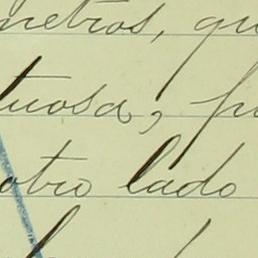 metros, qu
tuosa, p
otro lado